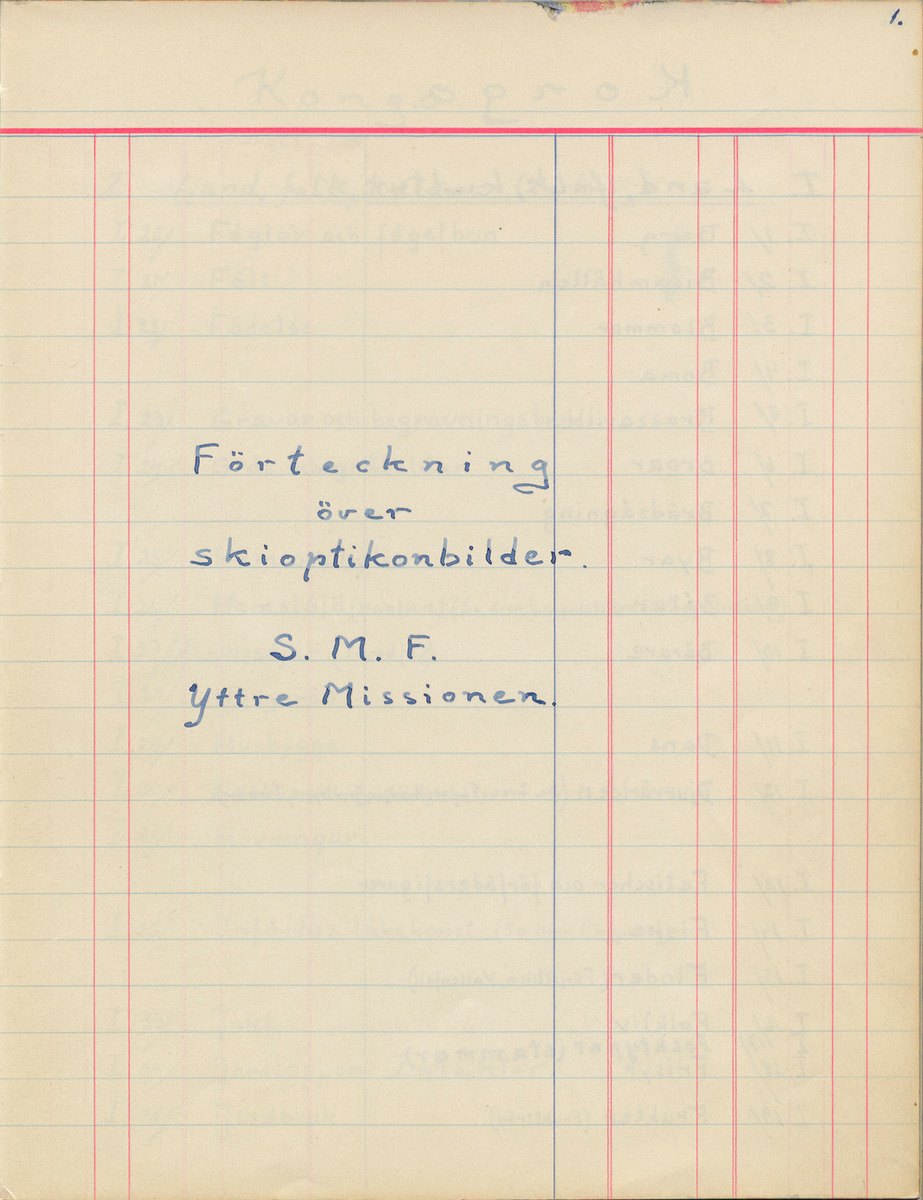 1.
Förteckning
över
skioptikonbilder.
S. M. F.
Yttre Missionen.